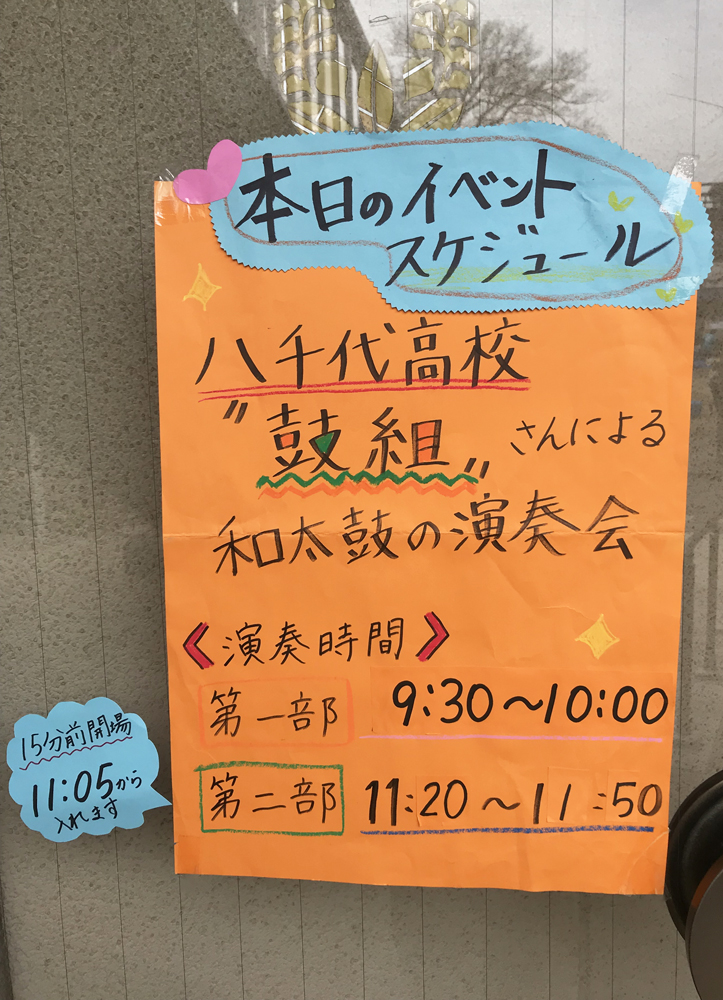 本日のイベント
スケジュール
八千代高校
〃鼓組〃さんによる
和太鼓の演奏会
《演奏時間》
第一部 9:30～10:00
第二部 11:20～11:50
15分前開場
11:05から
入れます